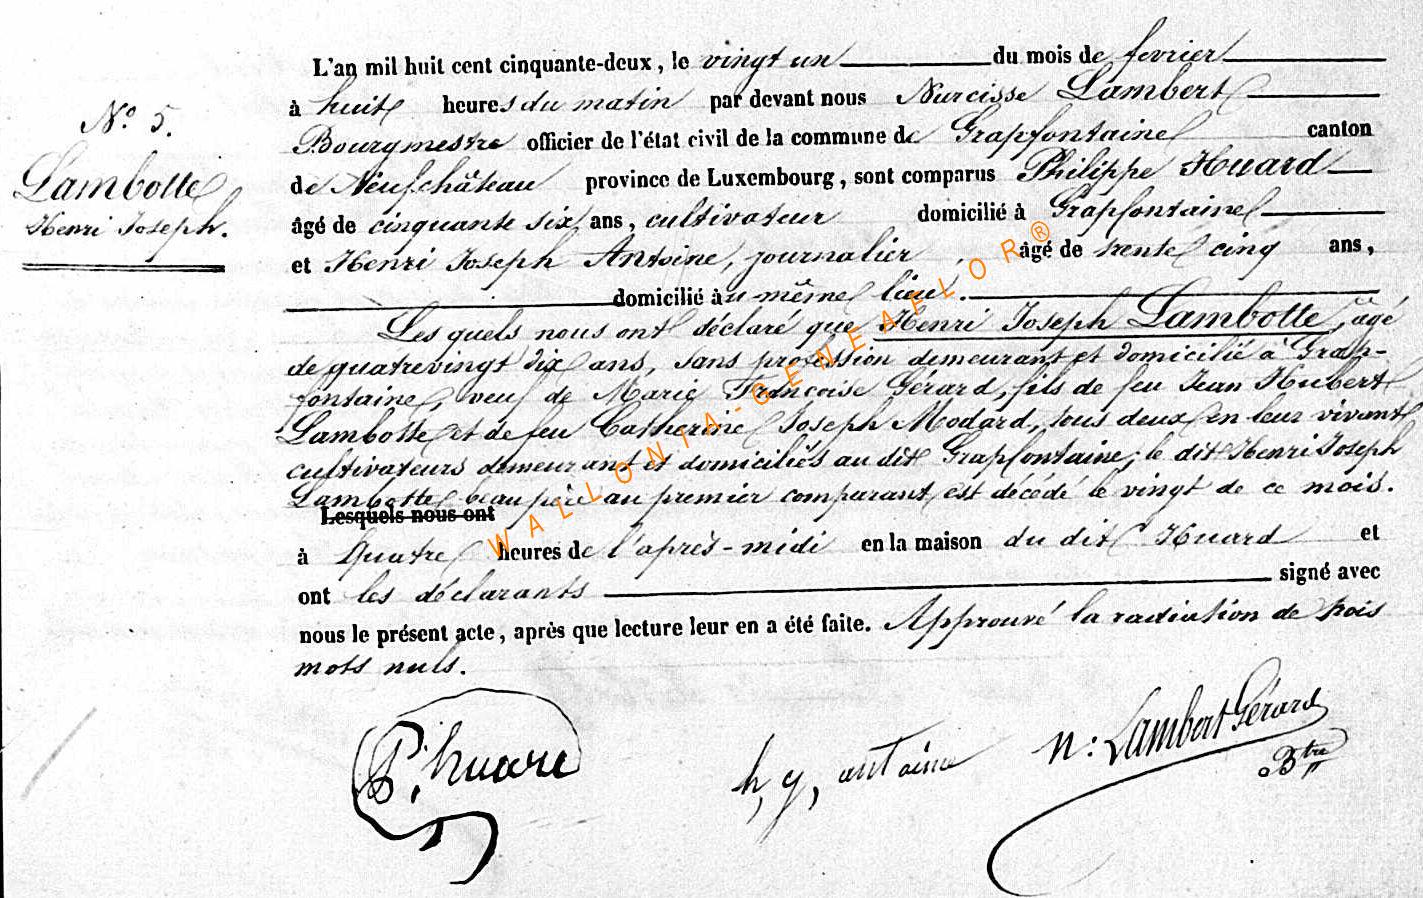 N.º 5.
Lambotte
Henri Joseph.
L'an mil huit cent cinquante-deux, le vingt un du mois de fevrier
à huit heures du matin par devant nous Narcisse Lambert
Bourgmestre officier de l'état civil de la commune de Grapfontaine canton
de Neufchâteau province de Luxembourg, sont comparus Philippe Huard
âgé de cinquante six ans, cultivateur domicilié à Grapfontaine
et Henri Joseph Antoine, journalier, âgé de trente cinq ans,
domicilié au même lieu.
Les quels nous ont déclaré que Henri Joseph Lambotte, âgé
de quatrevingt dix ans, sans profession demeurant et domicilié à Grap-
fontaine, veuf de Marie Françoise Gérard, fils de feu Jean Hubert
Lambotte et de feu Catherine Joseph Modard, tous deux en leur vivant
cultivateurs demeurant et domiciliés au dit Grapfontaine; le dit Henri Joseph
Lambotte beau père au premier comparant est décédé le vingt de ce mois.
Lesquels nous ont
à Quatre heures de l'après-midi en la maison du dit Huard et
ont les déclarants signé avec
nous le présent acte, après que lecture leur en a été faite. Approuvé la radiation de trois
mots nuls.
P. huard
h, j, antoine
N: Lambert Gérard
Btre
WALLONIA-GENEAFLOR®